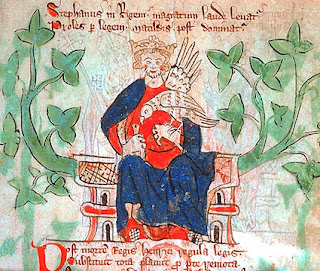 Stephanus in Regem. magnatum laude levat᷑
Proles ꝑ legem. matildis post dominat᷑
Post mortē Regis Henrici regula legis.
Substituit tota ꝑ pte remota